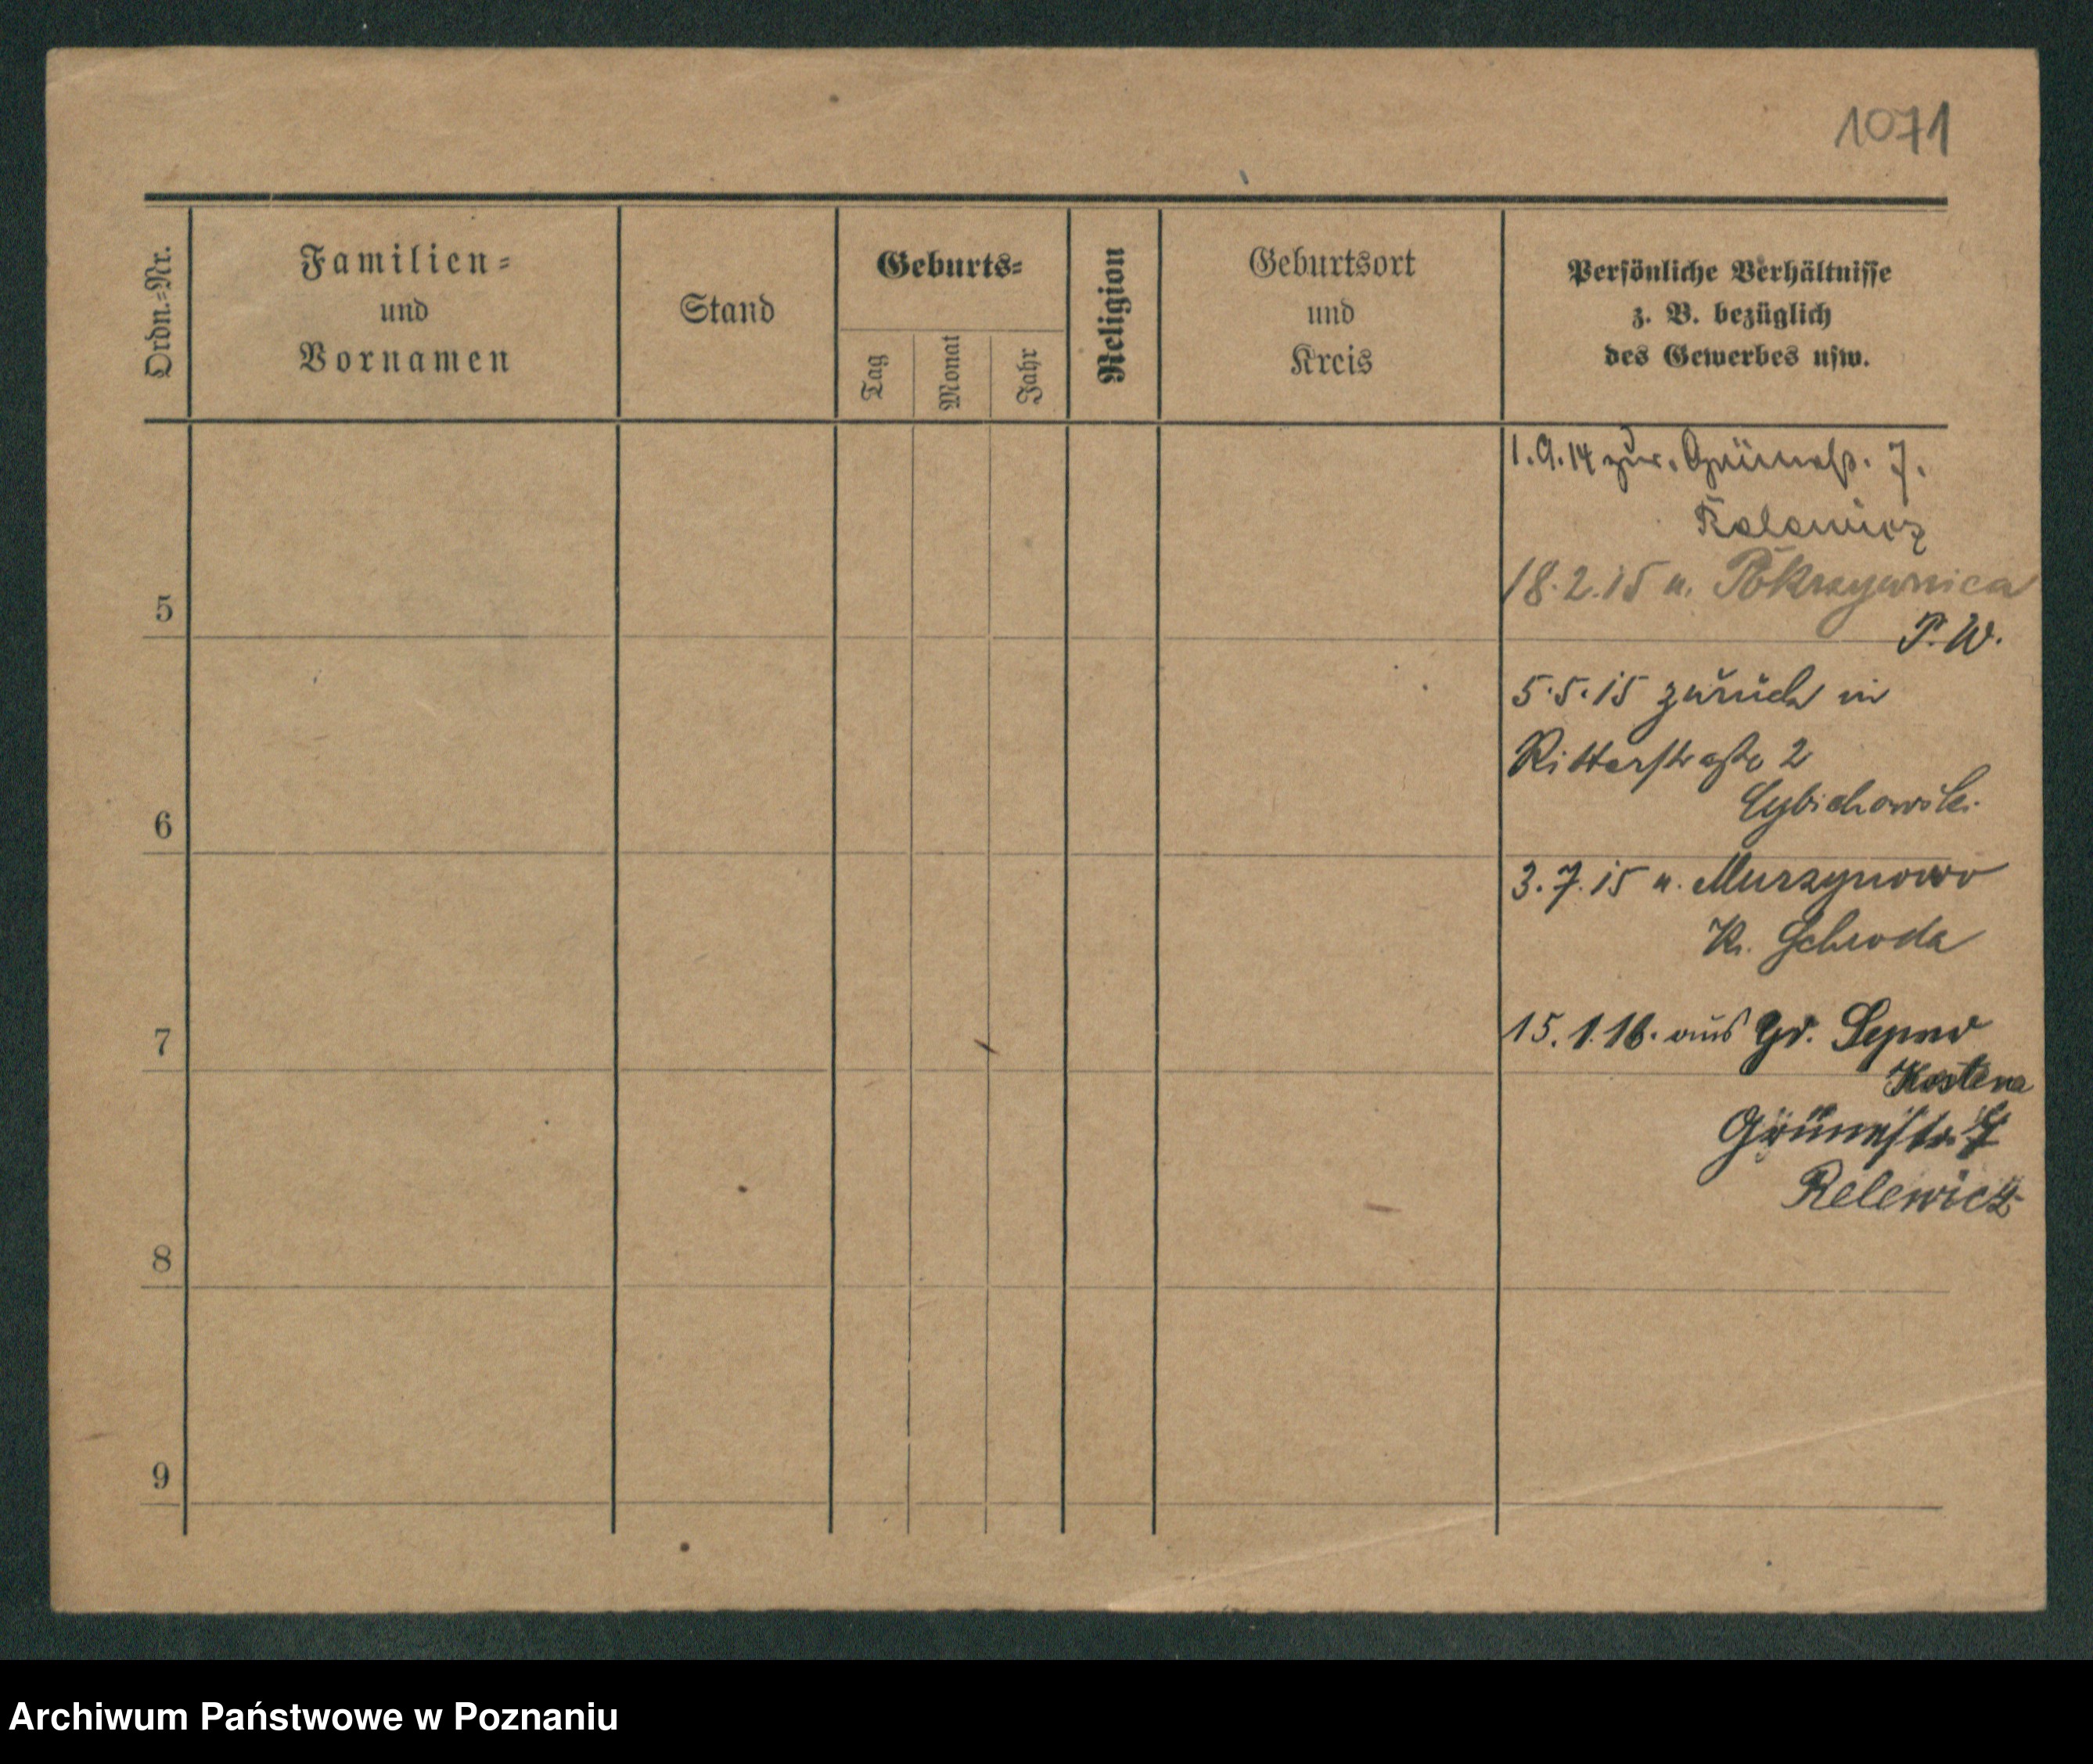 1071
Ordn.=Nr.
Familien=
und
Vornamen
Stand
Geburts=
Tag
Monat
Jahr
Religion
Geburtsort
und
Kreis
Persönliche Verhältnisse
z. B. bezüglich
des Gewerbes usw.
1.9.14 zur. Grünestr. 7.
18.2.15 n. Pokrzywnica
5
P. W.
5.5.15 zurück in
Ritterstraße 2
Cybichowski.
6
3.7.15 n. Murzynowo
K. Schroda
7
15.1.16. aus Gr. Sepno
Kosten
Grünestr.
Relewicz
8
9
Archiwum Państwowe w Poznaniu